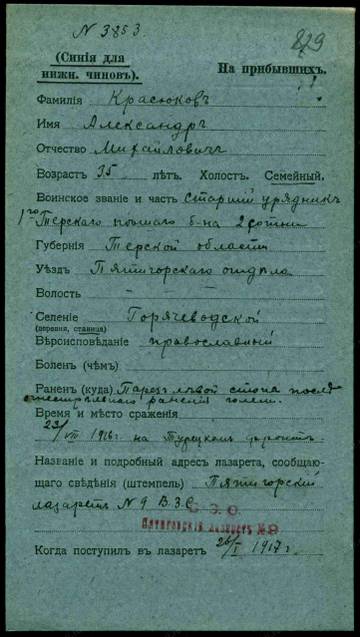 N 3853
829
(Синія для
нижн. чиновъ).
На прибывшихъ.
Фамилія Красюковъ
Имя Александръ
Отчество Михайловичъ
Возрастъ 35 лѣтъ. Холост. Семейный.
Воинское званіе и часть Старшій урядникъ
1го Терскаго пѣшаго б-на 2 сотни
Губернія Терской области
Уѣздъ Пятигорскаго отдѣла
Волость – – –
Селеніе Горячеводской
(деревня, станица)
Вѣроисповѣданіе православный
Боленъ (чѣмъ)
Раненъ (куда) Парезъ лѣвой стопы послѣ
огнестрѣльнаго раненія голени.
Время и мѣсто сраженія
23/VIII 1916 г. на Турецкомъ фронтѣ.
Названіе и подробный адресъ лазарета, сообщаю-
щаго свѣдѣнія (штемпель) Пятигорскій
лазаретъ N 9 В.З.С.
С. З. О.
Пятигорскій лазаретъ № 9
Когда поступилъ въ лазаретъ 26/I 1917 г.